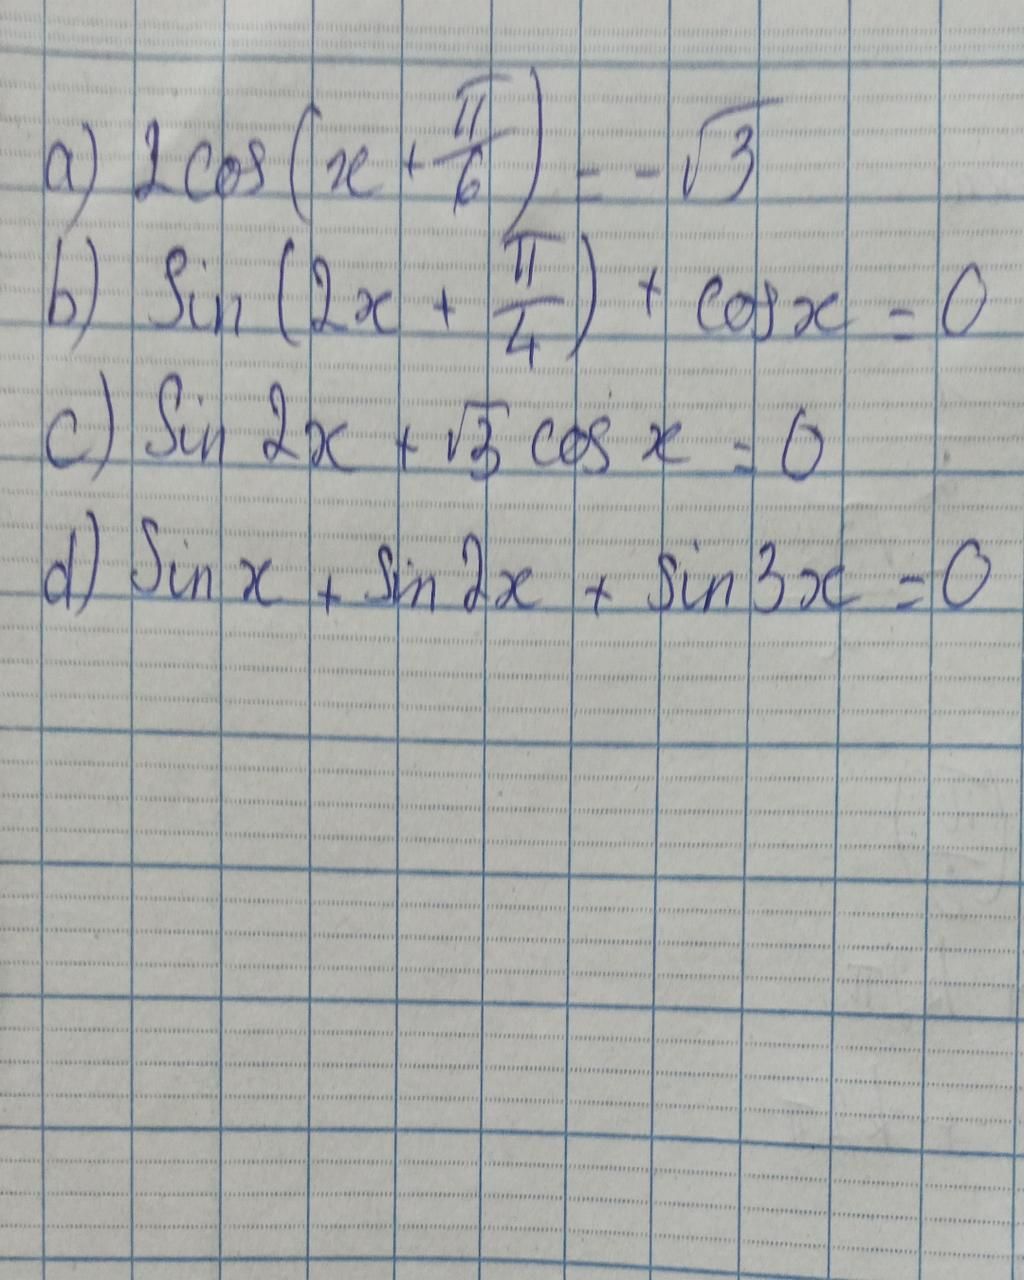 a) 2cos(x + π/6) = -√3
b) Sin(2x + π/4) + cosx = 0
c) Sin 2x + √3 cos x = 0
d) Sin x + sin 2x + sin 3x = 0